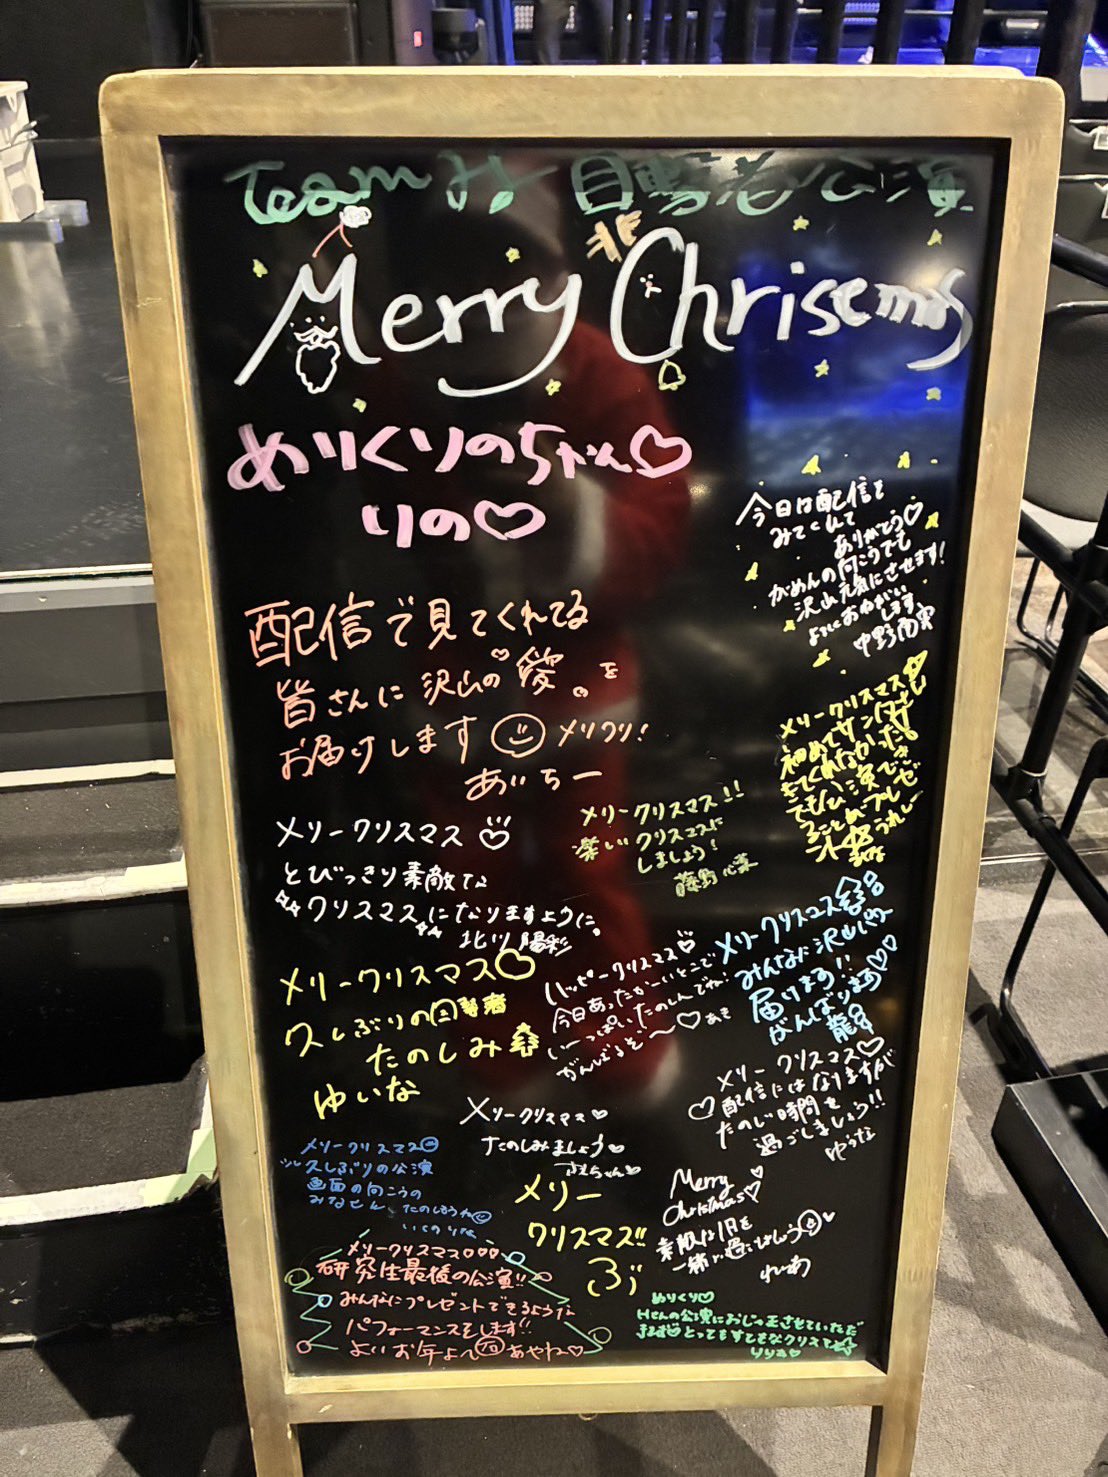 Team H 目撃者公演
Merry Christmas
めりくりのちゃん♡
りの♡
今日は配信を
みてくれて
ありがとう♡
がめんの向こうでも
沢山元気にさせます!
よろしくおねがい
します
配信で見てくれてる
皆さんに沢山の愛。を
お届けします メリクリ!
あいちー
メリークリスマス
初めてサンタさん
メリークリスマス!!
楽しいクリスマスに
しましょう!
藤野心葉
メリークリスマス
とびっきり素敵な
クリスマスになりますように。
北川陽彩
メリークリスマス
みんなに沢山パワー
届けます!!
がんばります♡♡
メリークリスマス♡
久しぶりの目撃者
たのしみ
ゆいな
ハッピークリスマス♡
今日あったかーいとこで
いーっぱいたのしんでね♡
がんばるぞ〜♡あき
メリークリスマス♡
♡配信にはなりますが
たのしい時間を
過ごしましょう!!
ゆうな
メリークリスマス♡
たのしみましょう♡
メリークリスマス
久しぶりの公演
画面の向こうの
みなせん たのしもうね
いくのりな
メリー
クリスマス!!
ぶぅ
Merry
Christmas♡
素敵な1日を
一緒に過ごしましょう
れいあ
メリークリスマス♡♡♡
研究生最後の公演!!
みんなにプレゼントできるような
パフォーマンスをします!!
よいお年よ〜 あやね♡
めりくり♡
Hさんの公演におじゃまさせていただ
きます♡とってもすてきなクリスマス